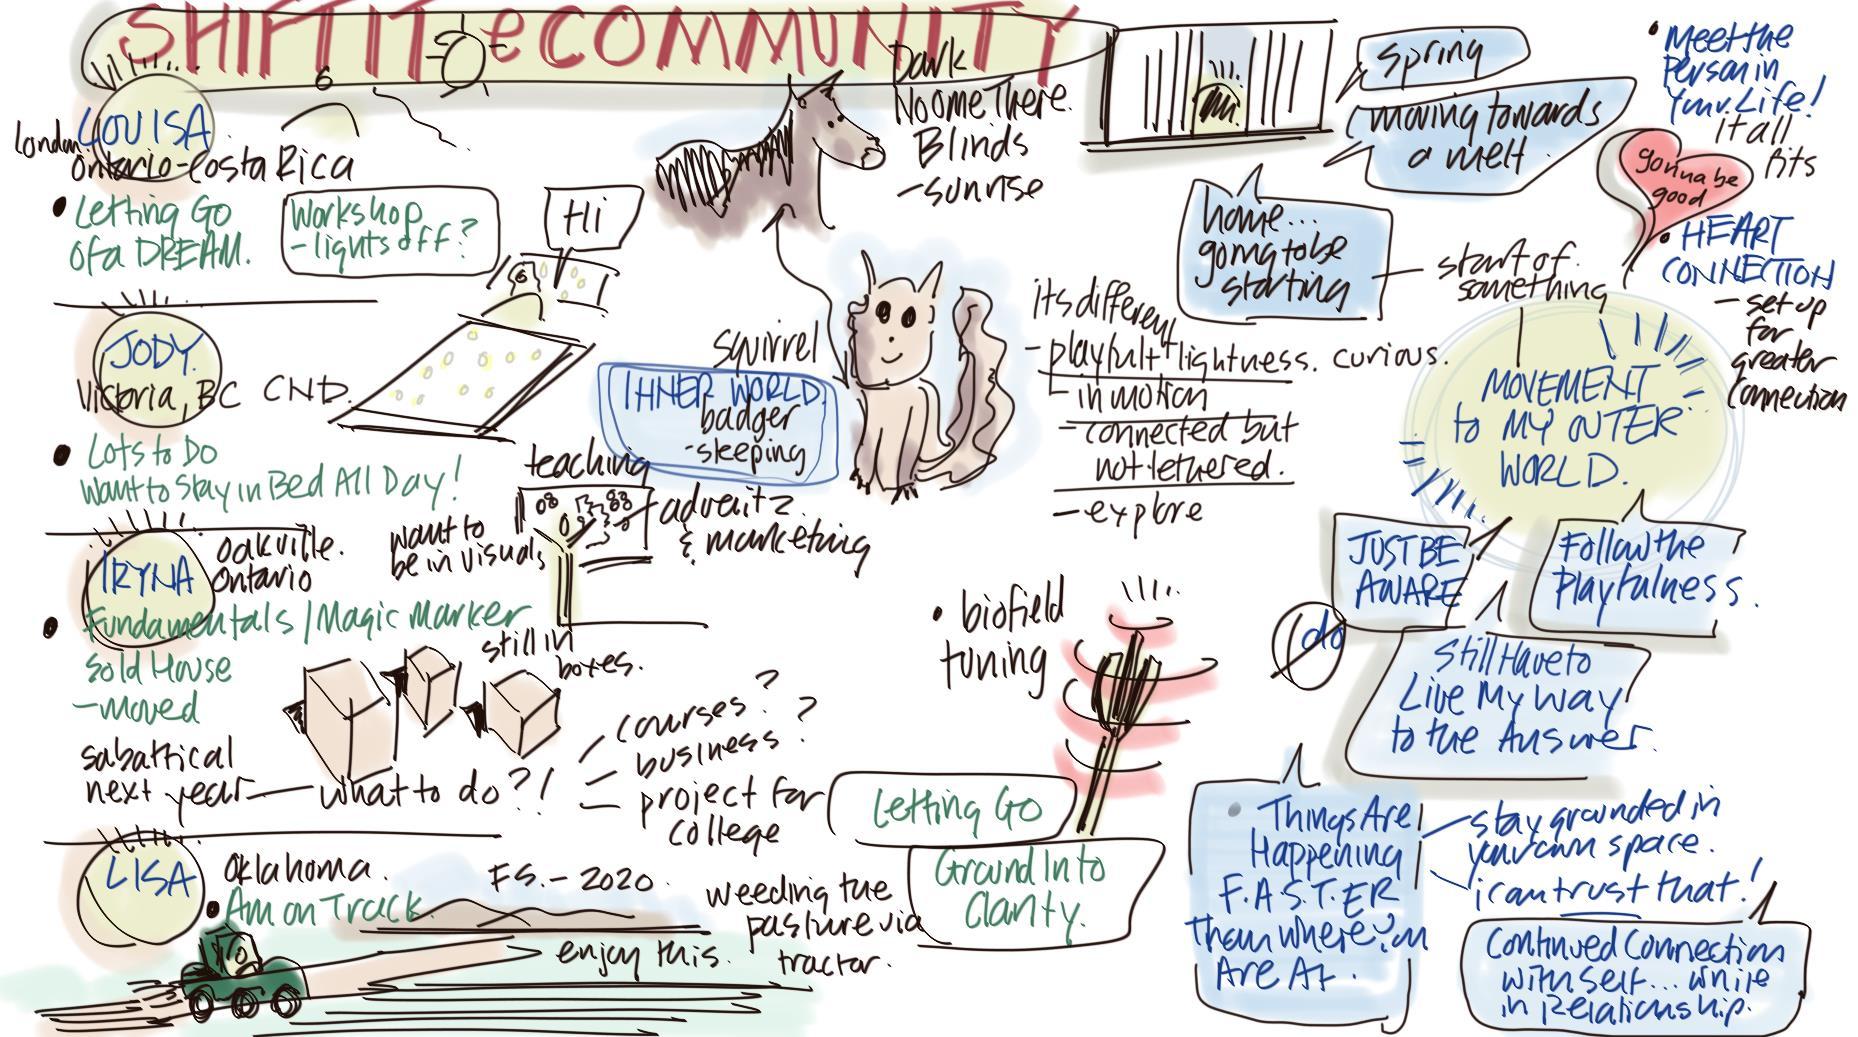 SHIFTIT eCOMMUNITY
LOUISA
London
Ontario-Costa Rica
Letting Go
of a DREAM.
Workshop
-lights off?
Hi
JODY.
Victoria, BC CND.
Lots to Do
Want to Stay in Bed All Day!
IRYNA
Oakville.
Ontario
Fundamentals/Magic Marker
Sold House
-moved
want to
be in visuals
teaching
& marketing
still in
boxes.
sabattical
next year - what to do?!
courses?
business?
project for
college
LISA
Oklahoma.
Am on Track.
F.S.-2020.
enjoy this.
weeding the
pasture via
tractor.
Dark
No one There.
Blinds
-sunrise
squirrel
INNER WORLD.
badger
-sleeping
its different
-playful + lightness. curious.
in motion
-connected but
not tethered.
-explore
spring
moving towards
a melt.
home...
going to be
starting
start of.
something
• Meet the
Person in
Your Life!
it all
fits
gonna be
good
• HEART
CONNECTION
-set up
for
greater
connection
MOVEMENT
to MY OUTER
WORLD.
JUST BE
AWARE
Follow the
Playfulness.
do
Still Have to
Live My Way
to the Answer.
• biofield
tuning
Letting Go
Ground Into
Clarity.
Things Are
Happening
F.A.S.T.E.R
Than where You
Are At.
stay grounded in
your own space.
i can trust that!
Continued Connection
with self... while
in Relationship.